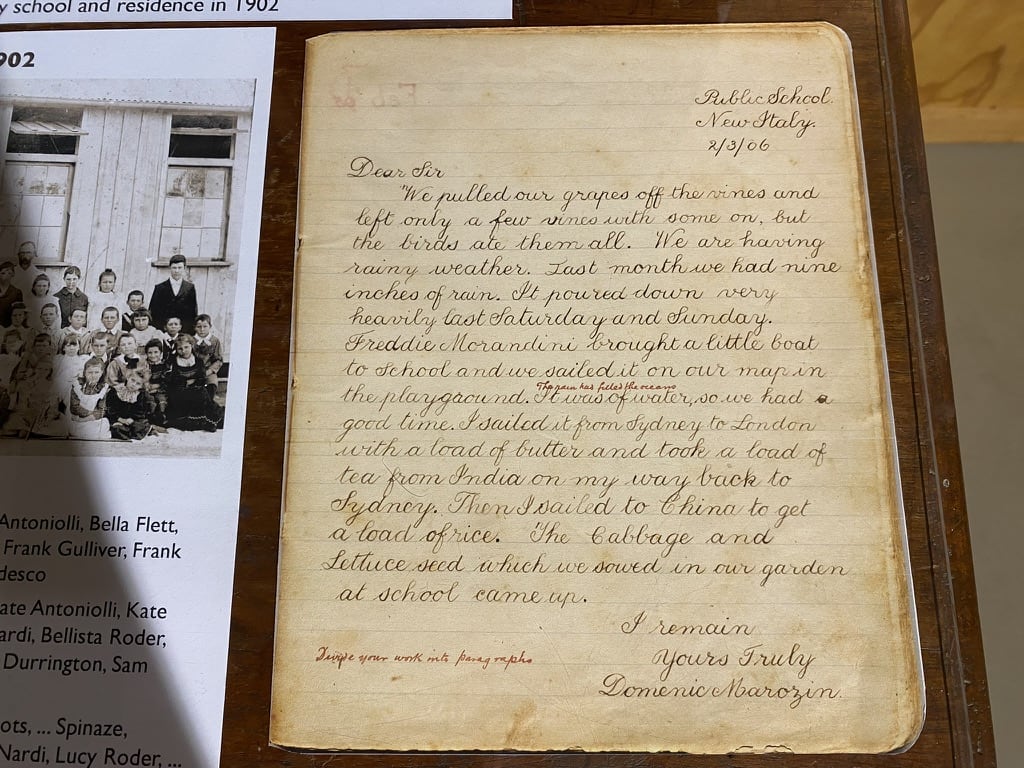 y school and residence in 1902
902
Antoniolli, Bella Flett,
Frank Gulliver, Frank
desco
ate Antoniolli, Kate
ardi, Bellista Roder,
Durrington, Sam
ots, ... Spinaze,
Nardi, Lucy Roder, ...
Public School.
New Italy.
2/3/06
Dear Sir
"We pulled our grapes off the vines and
left only a few vines with some on, but
the birds ate them all. We are having
rainy weather. Last month we had nine
inches of rain. It poured down very
heavily last Saturday and Sunday.
Freddie Morandini brought a little boat
to school and we sailed it on our map in
The rain has filled the oceans
the playgaound. It was of water, so we had a
good time. I sailed it from Sydney to London
with a load of butter and took a load of
tea from India on my way back to
Sydney. Then I sailed to China to get
a load of rice. The Cabbage and
Lettuce seed which we sowed in our garden
at school came up.
I remain
Yours Truly
Domenic Marozin.
Divide your work into paragraphs